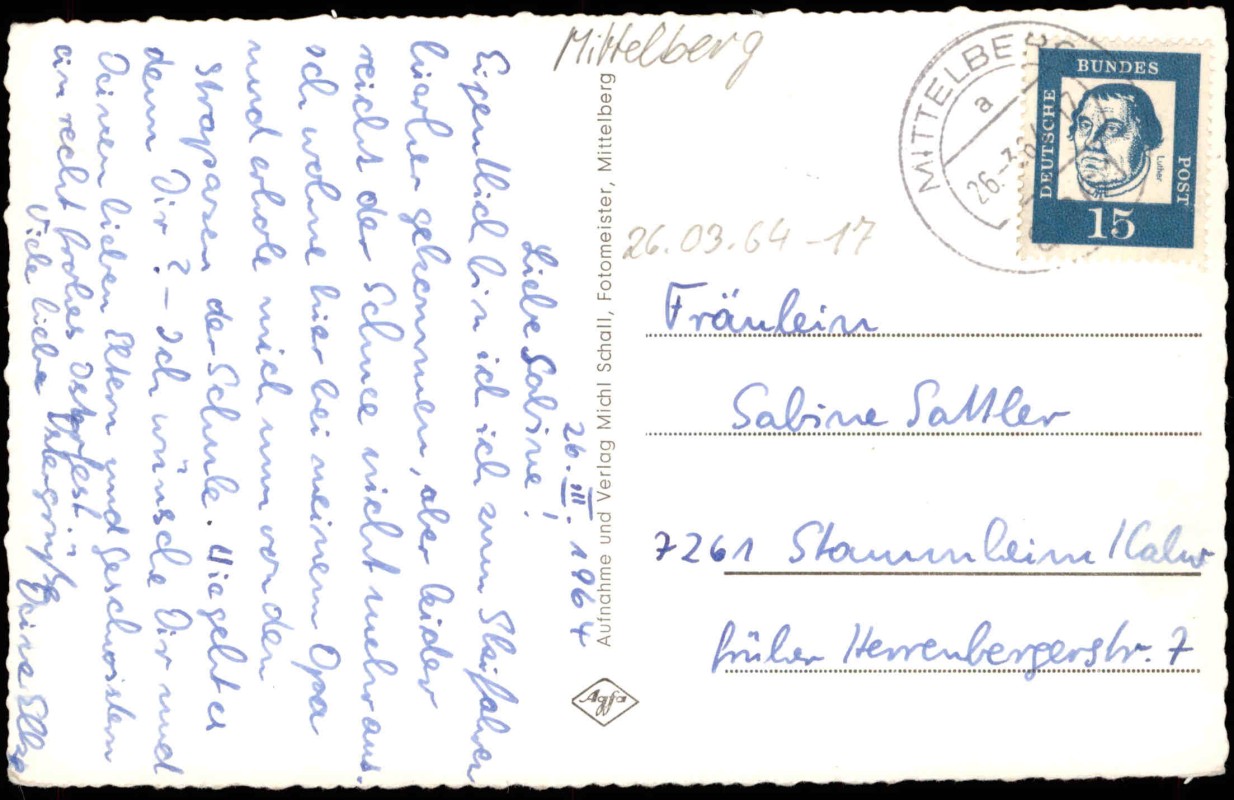 Mittelberg
26.III.1964
Liebe Sabine!
Eigentlich bin ich ich zum Skifahren
hierher gekommen, aber leider
reicht der Schnee nicht mehr aus.
Ich wohne hier bei meinem Opa
und erhole mich nun von den
Strapazen der Schule. Wie geht es
denn Dir? – Ich wünsche Dir und
Deinen lieben Eltern und Geschwistern
ein recht frohes Osterfest.
Viele liebe Ostergrüße
Deine
Aufnahme und Verlag Michl Schall, Fotomeister, Mittelberg
Agfa
MITTELBERG
a
26.-3.64-17
DEUTSCHE
BUNDES
POST
Luther
15
26.03.64-17
Fräulein
Sabine Sattler
7261 Stammheim/Calw
früher Herrenbergerstr. 7